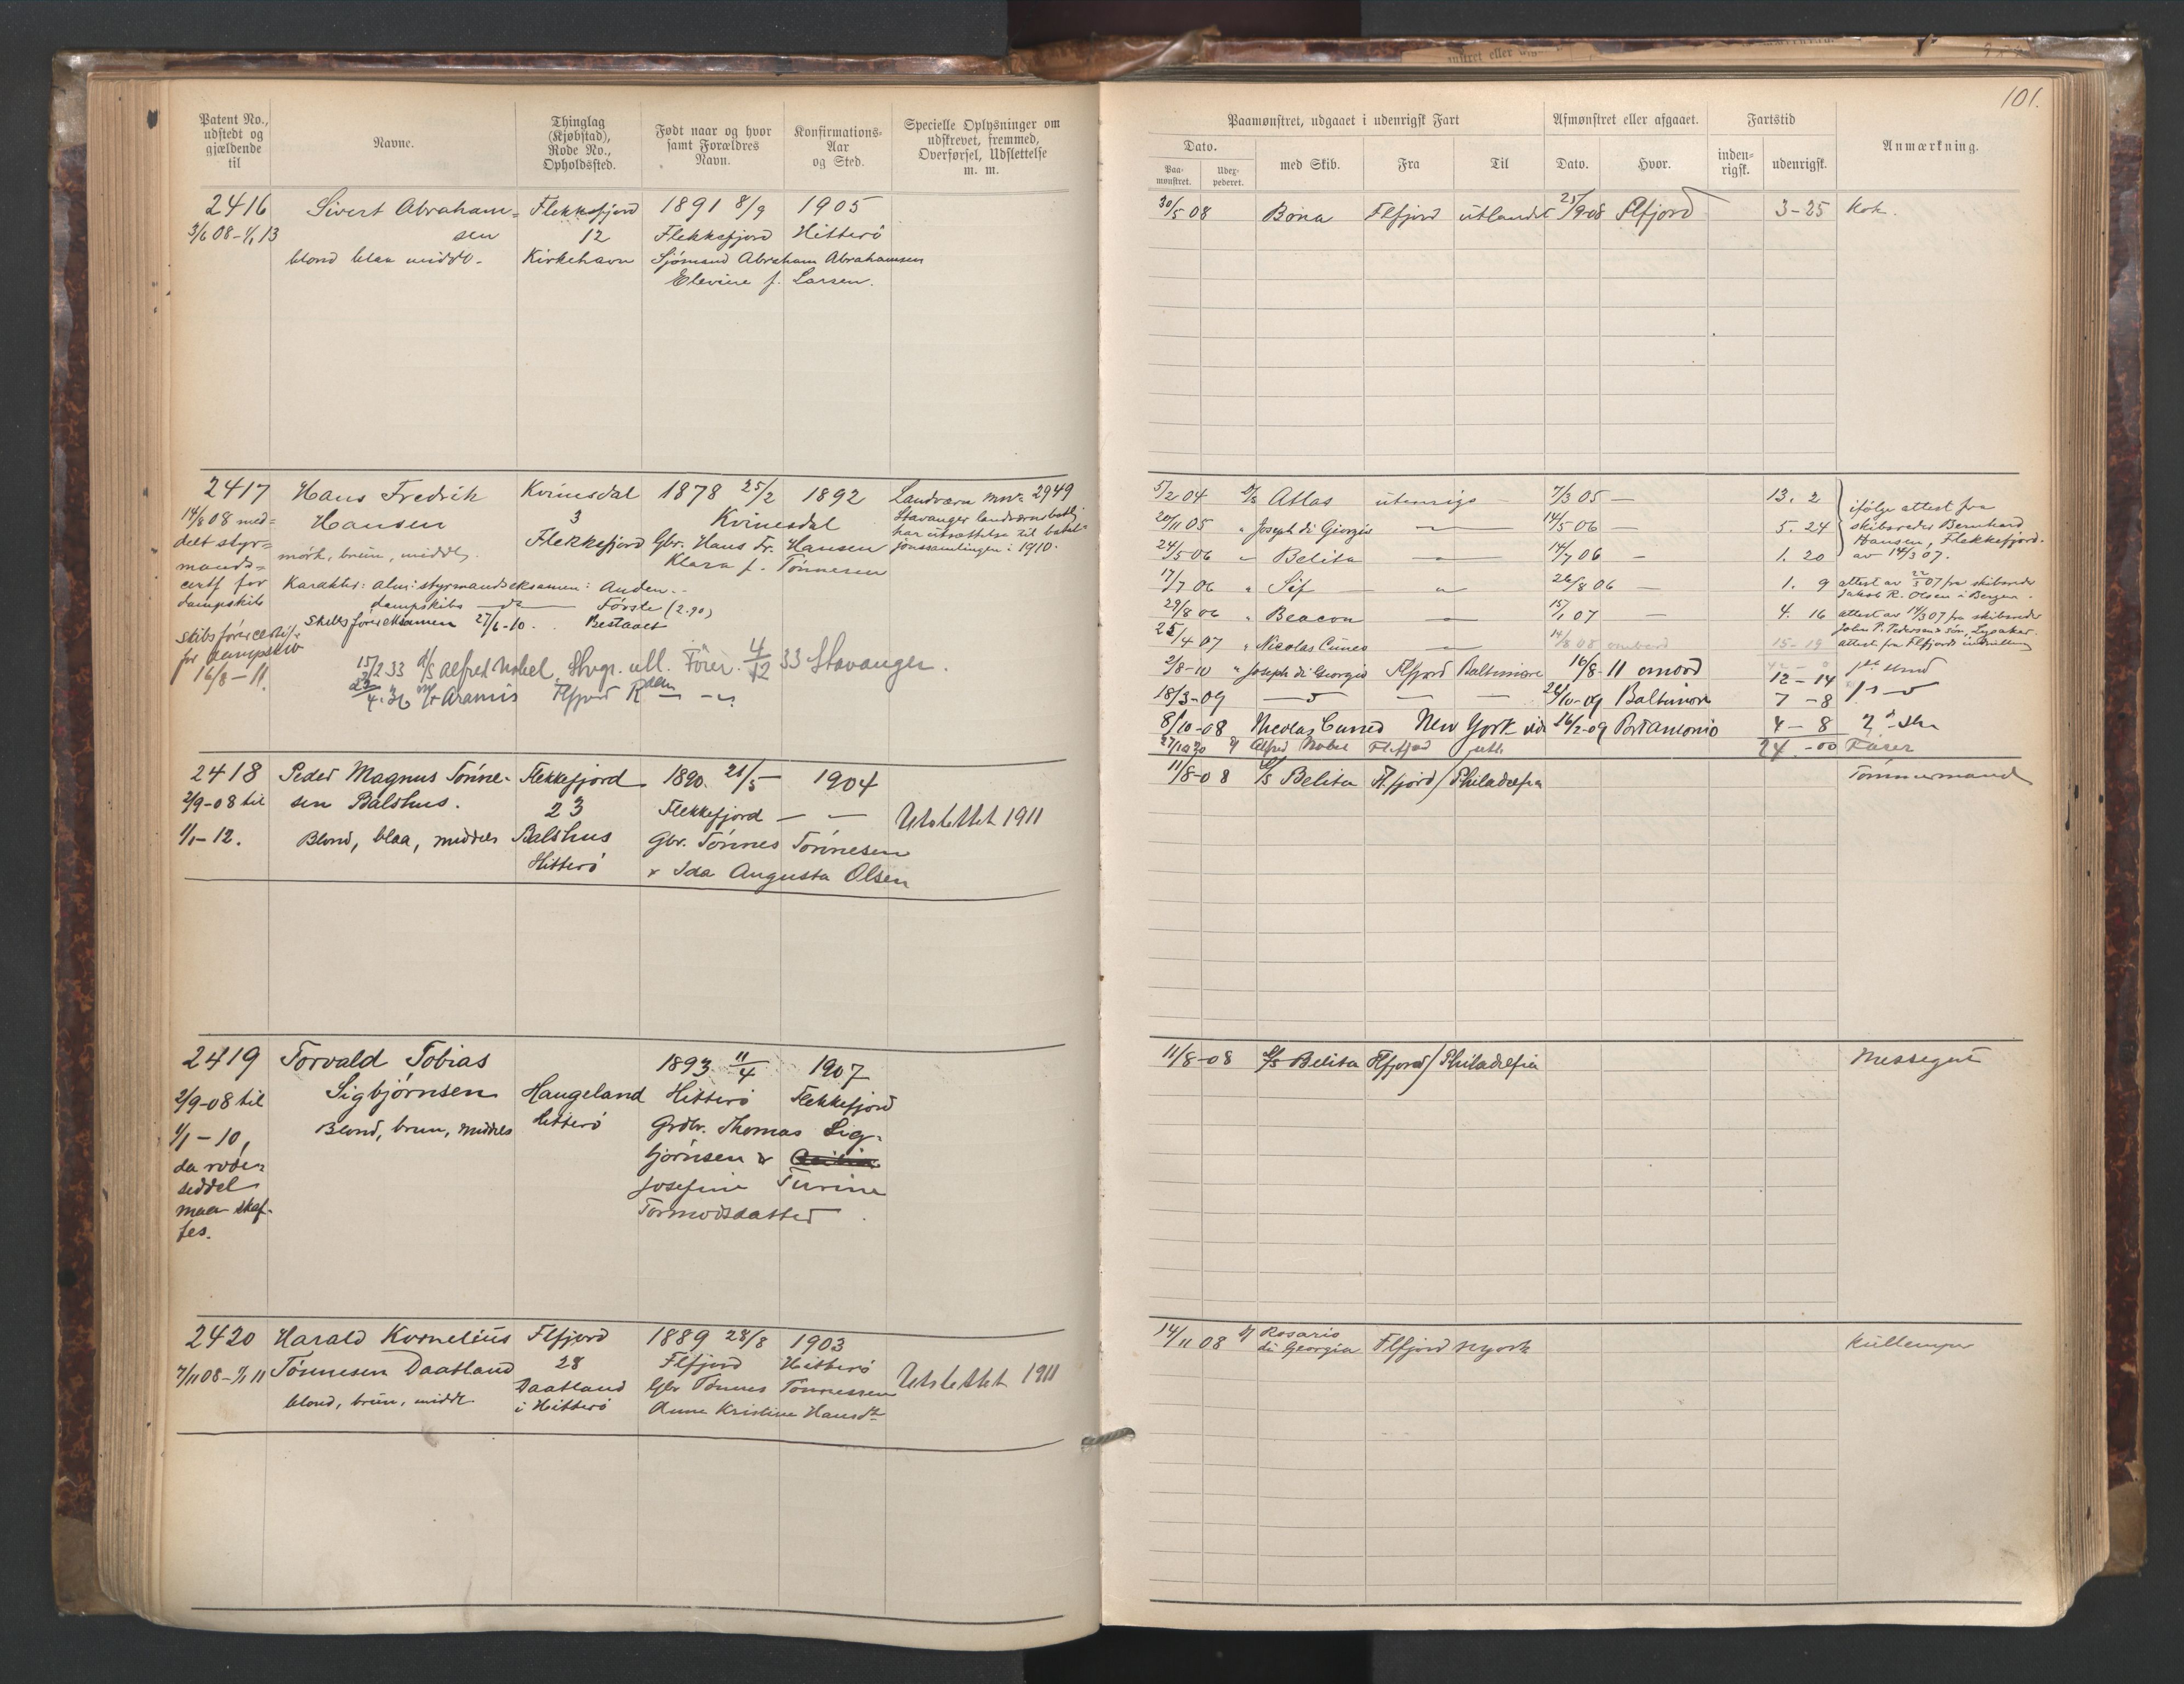 101.
Patent No., udstedt og gjældende til
Navne.
Thinglag (Kjøbstad), Rode No., Opholdssted.
Født naar og hvor samt Forældres Navn.
Konfirmations-Aar og Sted.
Specielle Oplysninger om udskrevet, fremmed, Overførsel, Udslettelse m. m.
Paamønstret, udgaaet i udenrigsk Fart
Afmønstret eller afgaaet.
Fartstid
Anmærkning.
Dato.
Paa-mønstret.
Udex-pederet.
med Skib.
Fra
Til
Dato.
Hvor.
inden-rigsk.
udenrigsk.
2416 Sivert Abraham= Flekkefjord 1891 8/9 1905
3/6 08 - 1/1 13 sen 12 Flekkefjord Hitterö
blond blaa midd. Kirkehavn Sjömand Abraham Abrahamsen
Elevine f. Larsen.
30/5 08 Bona Flfjord utlandet 25/9 08 Flfjord 3-25 Kok.
2417 Hans Fredrik Kvinesdal 1878 25/2 1892 Landværn mnr 2949
14/8 08 med= Hansen 3 Kvinesdal Stavanger landværnsbatlj
delt styr= Flekkefjord Gbr. Hans Fr. Hansen har utsættelse til batal=
mörk, brun, middels Klara f. Tönnesen jonssamlingen i 1910.
mands=
certf for Karakter: alm: styrmandseksamen: Anden.
dampskib dampskibs — do — Förste (2.90)
Skibsförereksamen 27/6-10. Bestaaet
skibsförercertif.
for dampskib
16/8-11.
15/2 33 D/S Alfred Nobel, Stvgr. utl. Förer. 4/12 33 Stavanger.
23/4.36 M/T Aramis Flfjord
5/2 04 D/S Atlas utenrigs 7/3 05 — 13. 2
20/11 05 " Joseph di Giorgio — 14/5 06 — 5. 24
24/5 06 " Belita — 14/7 06 — 1. 20
ifölge attest fra
skibsreder Bernhard
Hansen, Flekkefjord.
av 14/3 07.
17/7 06 " Sif — 26/8 06 — 1. 9 attest av 22/3 07 fra skibsreder
Jakob R. Olsen i Bergen.
29/8 06 " Beacon — 15/1 07 — 4. 16 attest av 14/3 07 fra skibsreder
John P. Pedersen & sön, Lysaker.
25/4 07 " Nicolas Cuneo — 14/8 08 ombord 15-19 attest fra Flfjords
2/8-10 " Joseph di Giorgio Flfjord Baltimore 16/8-11 omord 12-14 1ste stmd
18/3-09 — — — 26/10-09 Baltimore 7-8
8/10-08 Nicolas Cuneo New York 16/2-09 Port Antonio 4-8
Alfred Nobel Flefjord utl. 24-00 Förer
2418 Peder Magnus Tönne- Flekkefjord 1890. 21/5 1904
2/9-08 til sen Balshus. 23 Flekkefjord — — Utslettet 1911
1/1-12. Blond, blaa, middels Balshus Gbr. Tönnes Tönnesen
Hitterö & Ida Augusta Olsen
11/8-08 D/S Belita Flfjord / Philadelfia Tömmermand
2419 Torvald Tobias 1893 11/4 1907
2/9-08 til Sigbjörnsen Haugeland Hitterö Flekkefjord
1/1-10, Blond, brun, middels Hitterö Grdbr. Thomas Sig-
da rode= björnsen &
seddel Josefine Turine
maa skaf- Tormodsdatter
fes.
11/8-08 D/S Belita Flfjord / Philadelfia Messegut
2420 Harald Kornelius Flfjord 1889 28/8 1903
7/11 08 - 1/1 11 Tönnesen Daatland 28 Flfjord Hitterö
Daatland Gbr Tönnes Tönnessen Utslettet 1911
blond, brun, midd. i Hitterö Anne Kristine Hansdt
14/11 08 D/S Rosario di Georgia Flfjord Nyork Kullemper